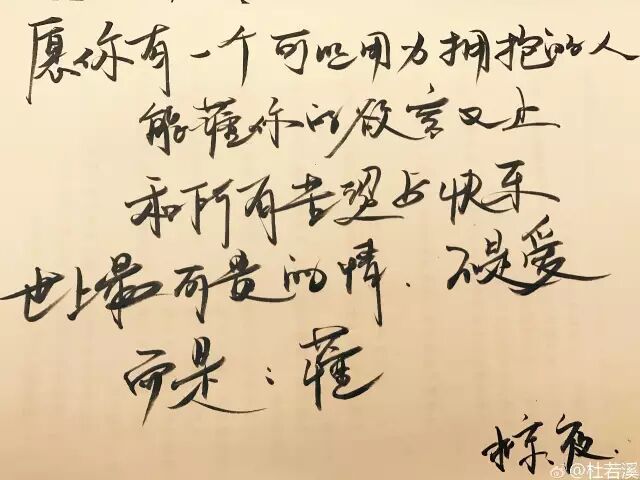 愿你有一个可以用力拥抱的人
能懂你的欲言又止
和所有苦与快乐
世上最可贵的情、不是爱
而是：懂
夜
@杜若溪